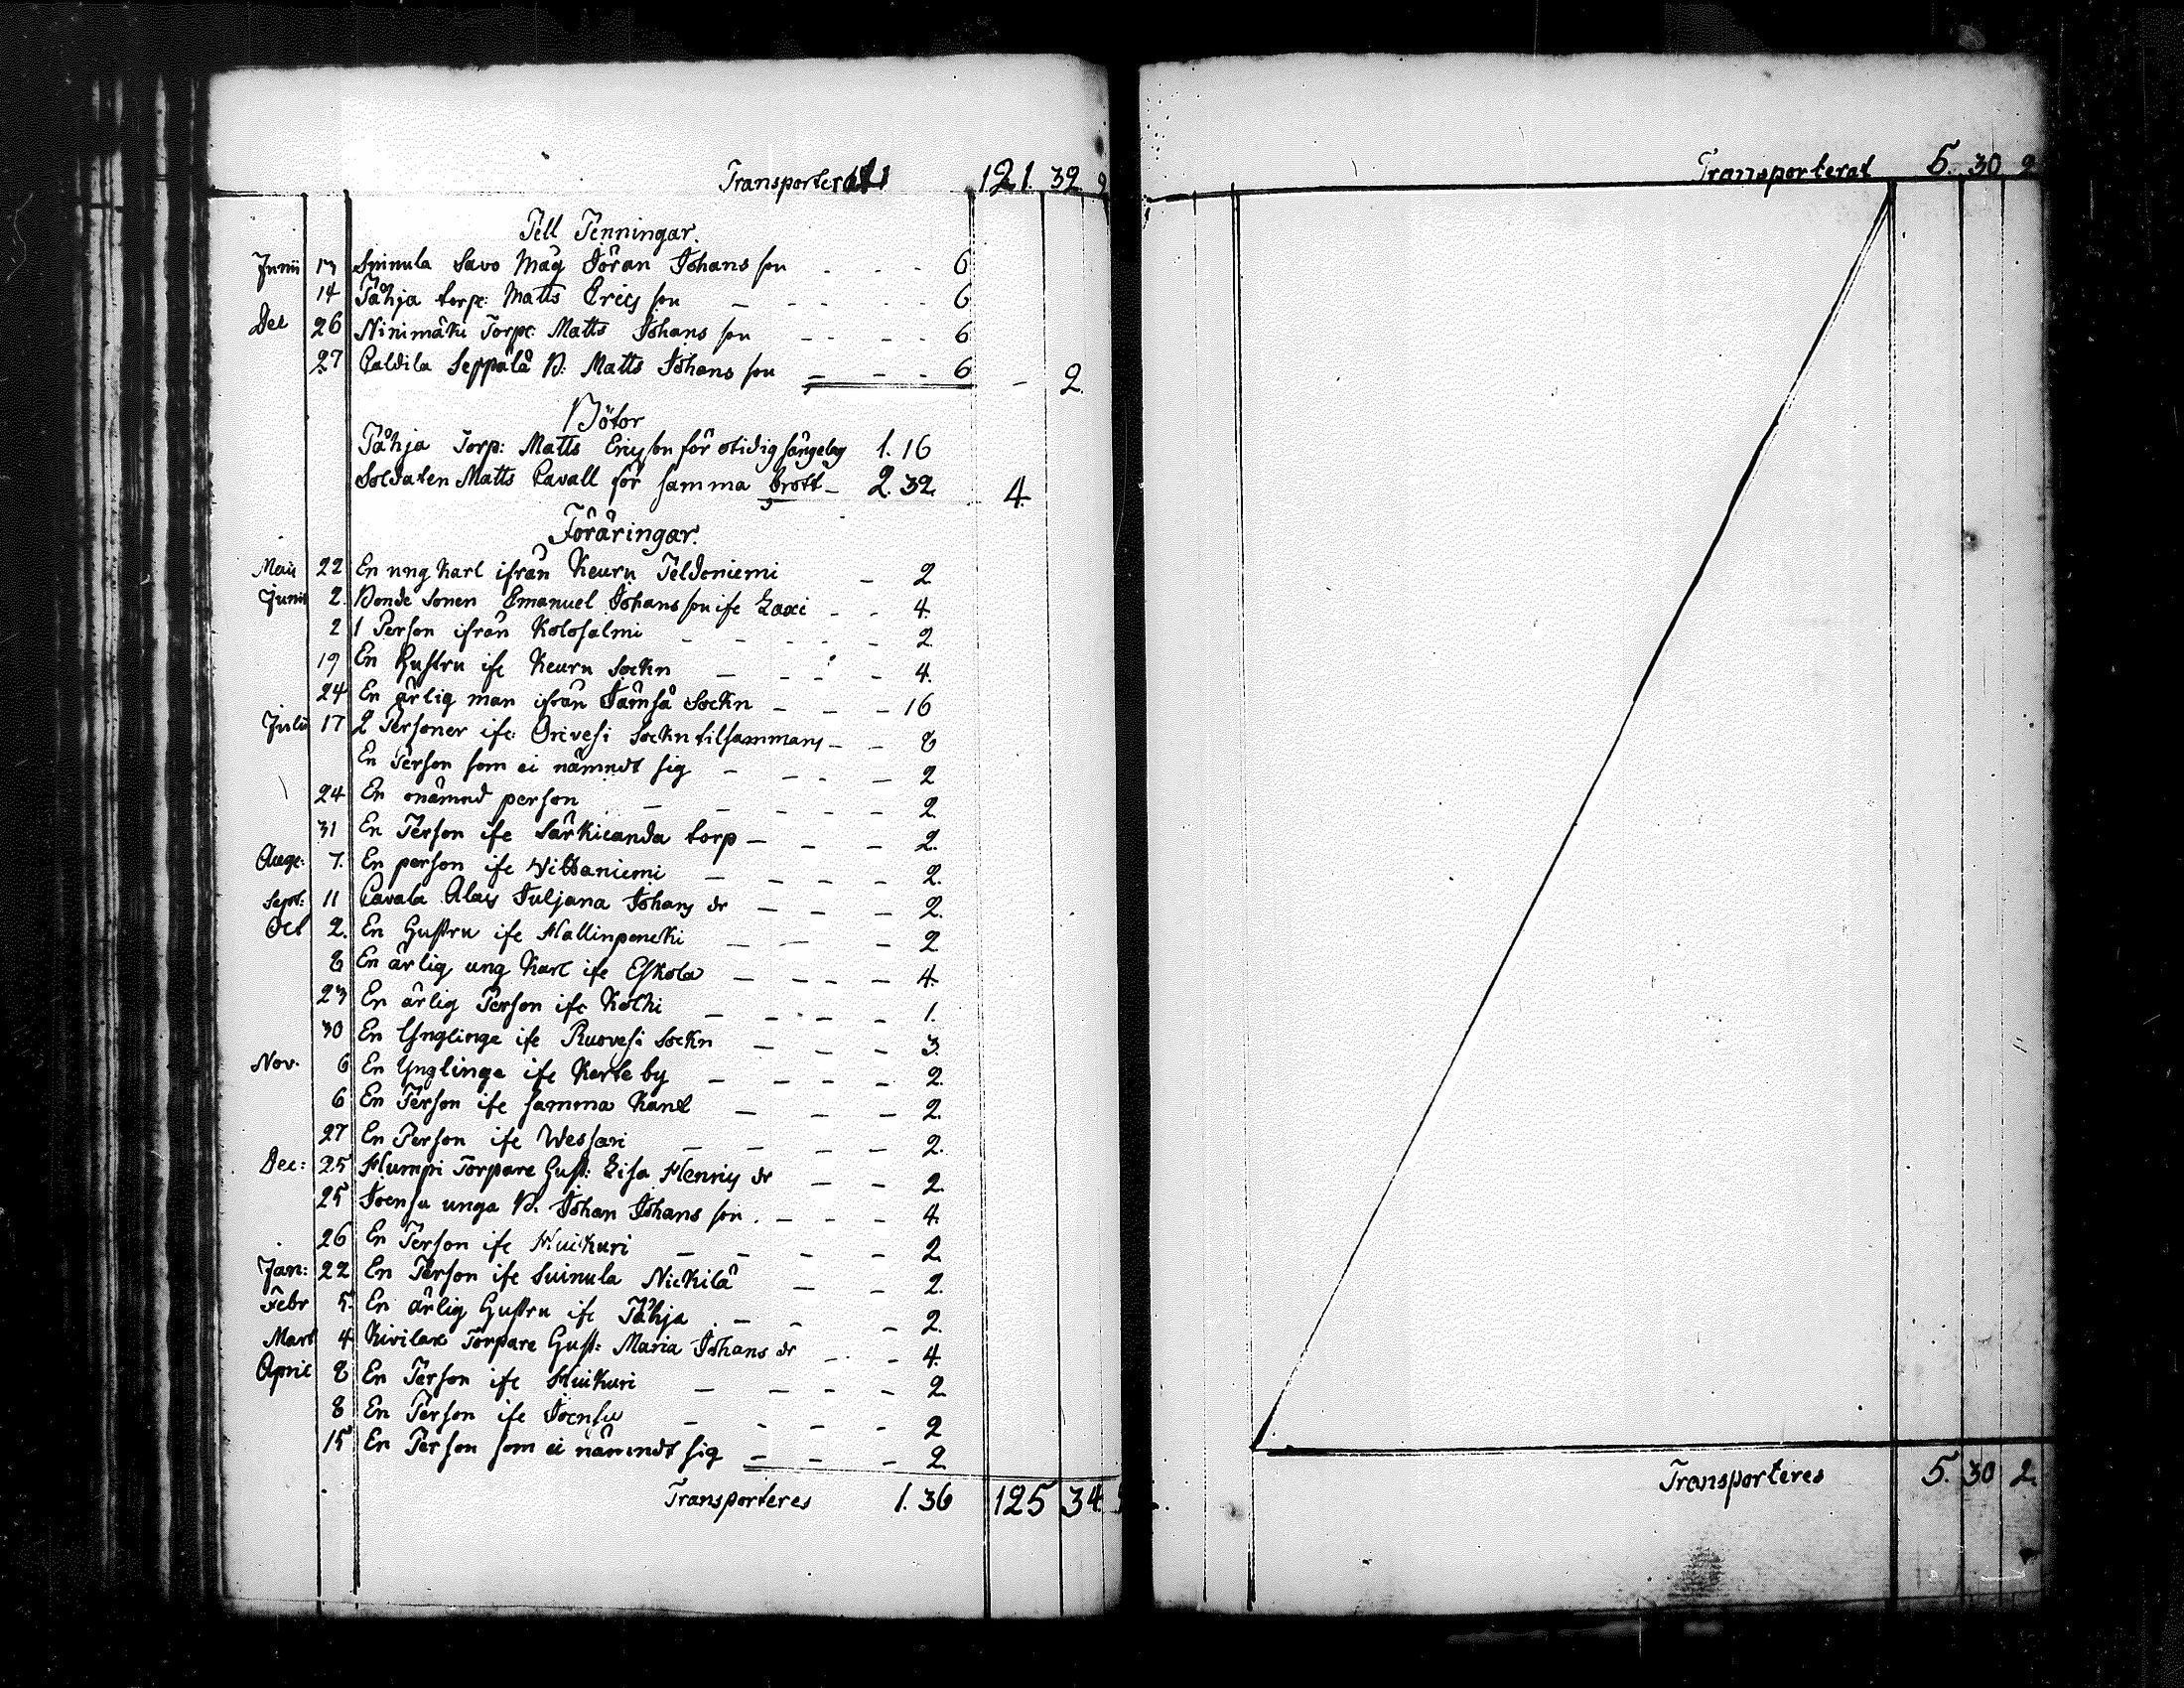 Transporterat 121. 32 2
Tell Penningar.
Junii 13 Suinula Savo Måg Jöran Johans son - - - 6
14 Tåhja torp: Matts Erics son - - - - 6
Dec 26 Ninimäki Torp: Matts Johans son - - - - 6
27 Caldila Seppälä B: Matts Johans son - - - 6 - 2.
Bötor
Tåhja Torp: Matts Ericson för otidig sängelag 1. 16
Soldaten Matts Cavall för samma brott - 2. 32. 4.
Föräringar.
Maii 22 En ung karl ifrån Keuru Teldeniemi - 2
Junii 2. Bonde Sonen Emanuel Johans son ifr Laxi - - 4.
2 1 Person ifrån Kolosalmi - - - - 2
19 En Hustru ifr Keuru Sockn - - - - 4.
24 En ärlig man ifrån Jämsä Sockn - - - 16
Julii 17 2 Personer ifr: Orivesi Sockn tilsammans - - 8
En Person som ei nämndt sig - - - - 2
24 En onämnd person - - - - - 2
31 En Person ifr Särkicanda torp - - - 2.
Aug: 7. En person ifr Wildaniemi - - - - 2.
Sept: 11 Cavala Alais Juljana Johans dr - - - 2.
Oct 2. En Hustru ifr Hallinpencki - - - 2
8 En ärlig ung Karl ifr Eskola - - - - 4.
23 En ärlig Person ifr Kolhi - - - - 1.
30 En Ynglinge ifr Ruovesi Sockn - - - 3.
Nov. 6 En Ynglinge ifr Kerte by - - - - 2.
6 En Person ifr samma Kant - - - 2.
27 En Person ifr Wessari - - - - 2.
Dec: 25 Humpi Torpare Hust: Lisa Henrics dr - - 2
25 Joensu unga B. Johan Johans son. - - - 4.
26 En Person ifr Huikuri - - - - 2
Jan: 22 En Person ifr Suinula Nickilä - - - 2.
Febr 5. En ärlig Hustru ifr Tåhja - - - 2.
Mart 4 Kivilax Torpare Hust: Maria Johans dr - - 4.
April 8 En Person ifr Huikuri - - - - 2
8 En Person ifr Joensu - - - - 2
15 En Person som ei nämndt sig - - - 2
Transporteres 1. 36 125 34.
Transporterat 5. 30 2
Transporteres 5. 30 2.